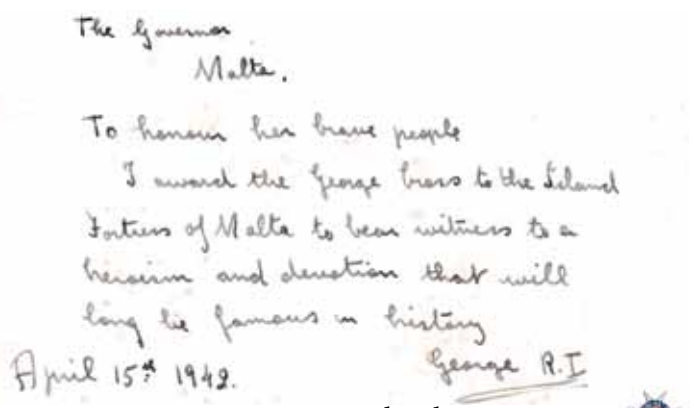 The Governor
Malta.
To honour her brave people
I award the George Cross to the Island
Fortress of Malta to bear witness to a
heroism and devotion that will
long be famous in history
George R.I.
April 15th 1942.